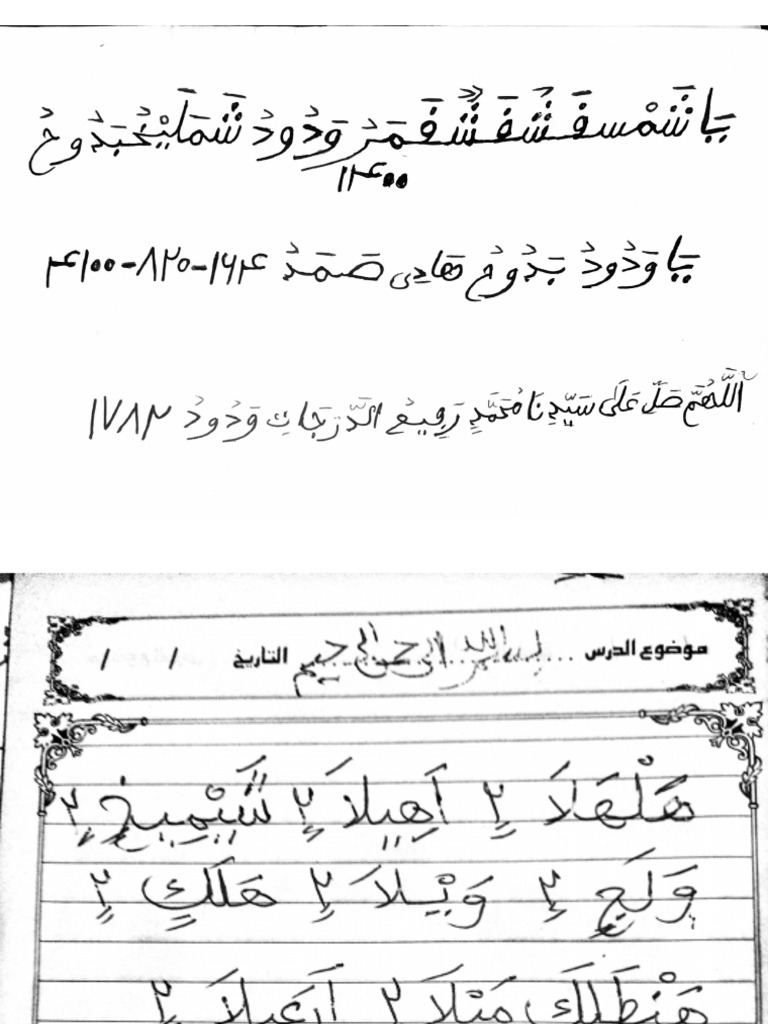 يَا شَمْسفَشُفَشُفَمَرُ وَدُودُ شَمَلَيْخُبَدُوحُ
١٢٤٠٠
يَا وَدُودُ بَدُوحُ هَادِى صَمَدُ ١٦٤-٨٢٠-٤١٠٠
اَللَّهُمَّ صَلِّ عَلَى سَيِّدِنَا مُحَمَّدٍ رَفِيعِ الدَّرَجَاتِ وَدُودُ ١٧٨٢
موضوع الدرس ... بسم الله الرحمن الرحيم التاريخ / /
هَلْهَلَا ٢ اَهِيلاَ ٢ شَيْمِيخٍ ٢
وَلَجٍ ٢ وَيْلاَ ٢ هَلَكٍ ٢
هَنْطَلِكَ مَثَلاَ ٢ اَرَعَيلاَ ٢